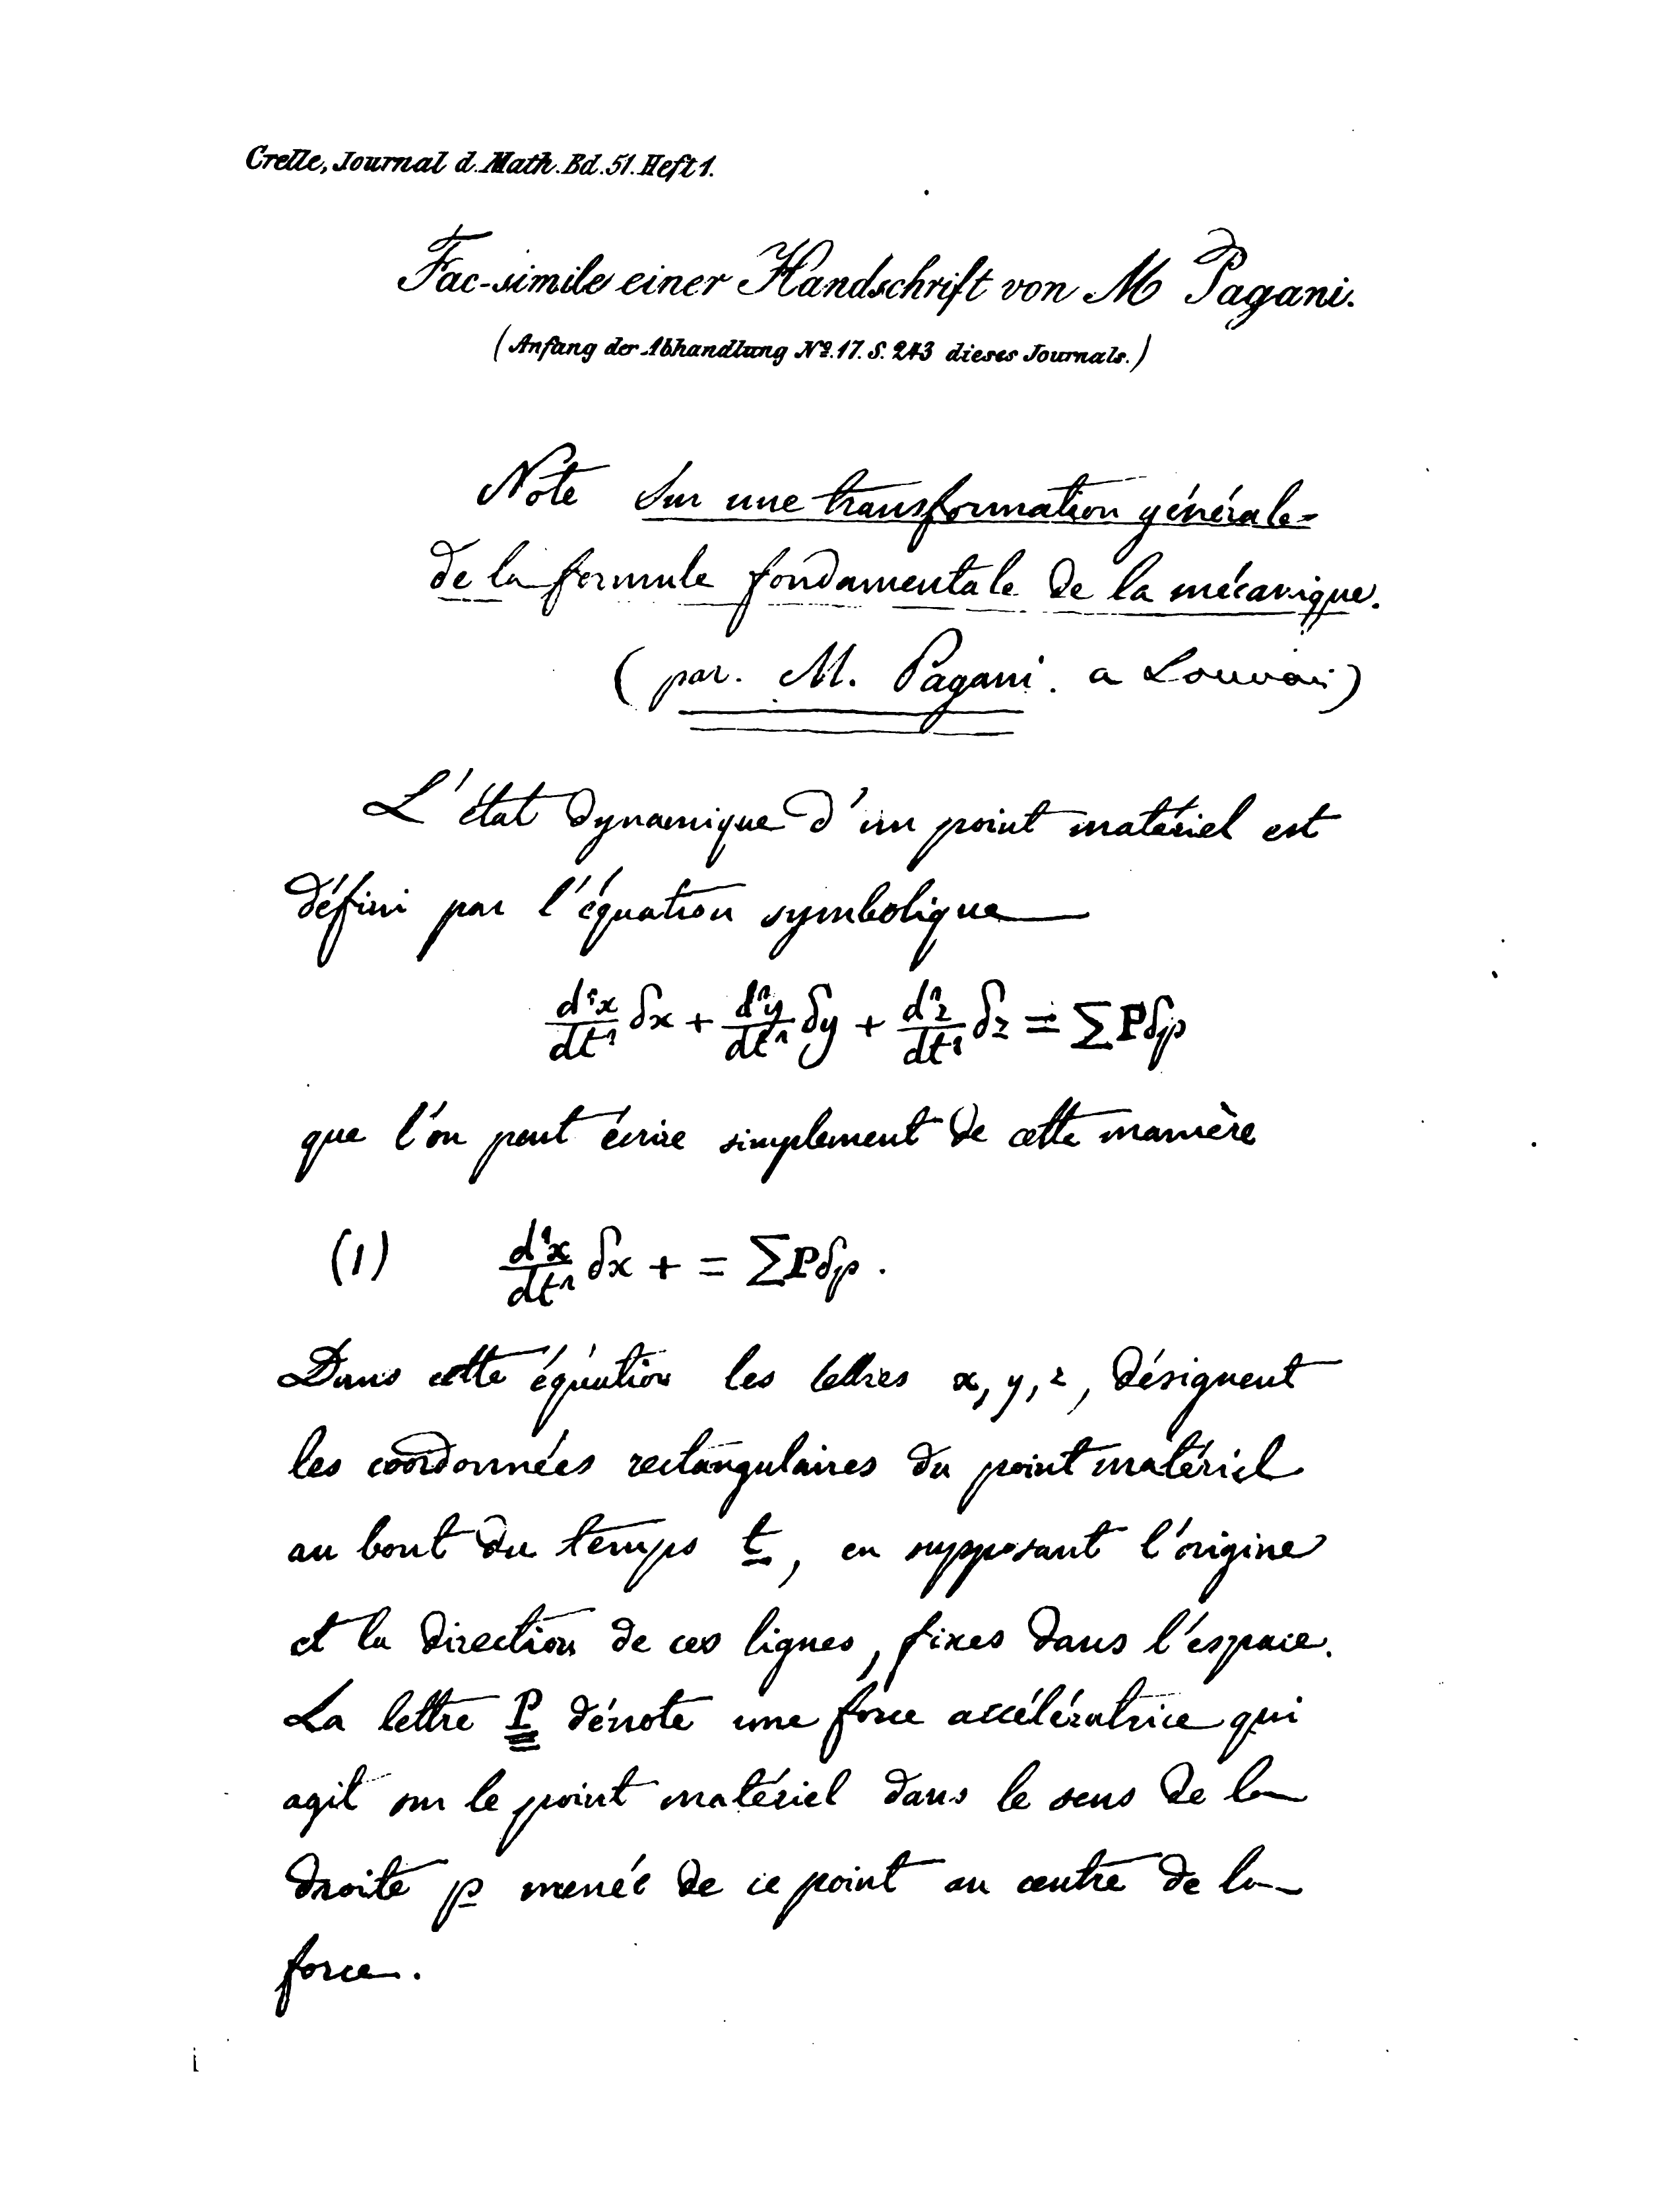 Crelle, Journal d. Math. Bd. 51. Heft 1.
Fac-simile einer Handschrift von M Pagani.
(Anfang der Abhandlung No. 17. S. 243 dieses Journals.)
Note sur une transformation générale
de la formule fondamentale de la mécanique.
(par. M. Pagani. a Louvain)
L'état dynamique d'un point matériel est
défini par l'équation symbolique
d²x/dt² δx + d²y/dt² δy + d²z/dt² δz = ΣPδp
que l'on peut écrire simplement de cette manière
(1) d²x/dt² δx + = ΣPδp.
Dans cette équation les lettres x, y, z, désignent
les coordonnées rectangulaires du point matériel
au bout du temps t, en supposant l'origine
et la direction de ces lignes, fixes dans l'espace.
La lettre P dénote une force accélératrice qui
agit sur le point matériel dans le sens de la
droite p menée de ce point au centre de la
force.